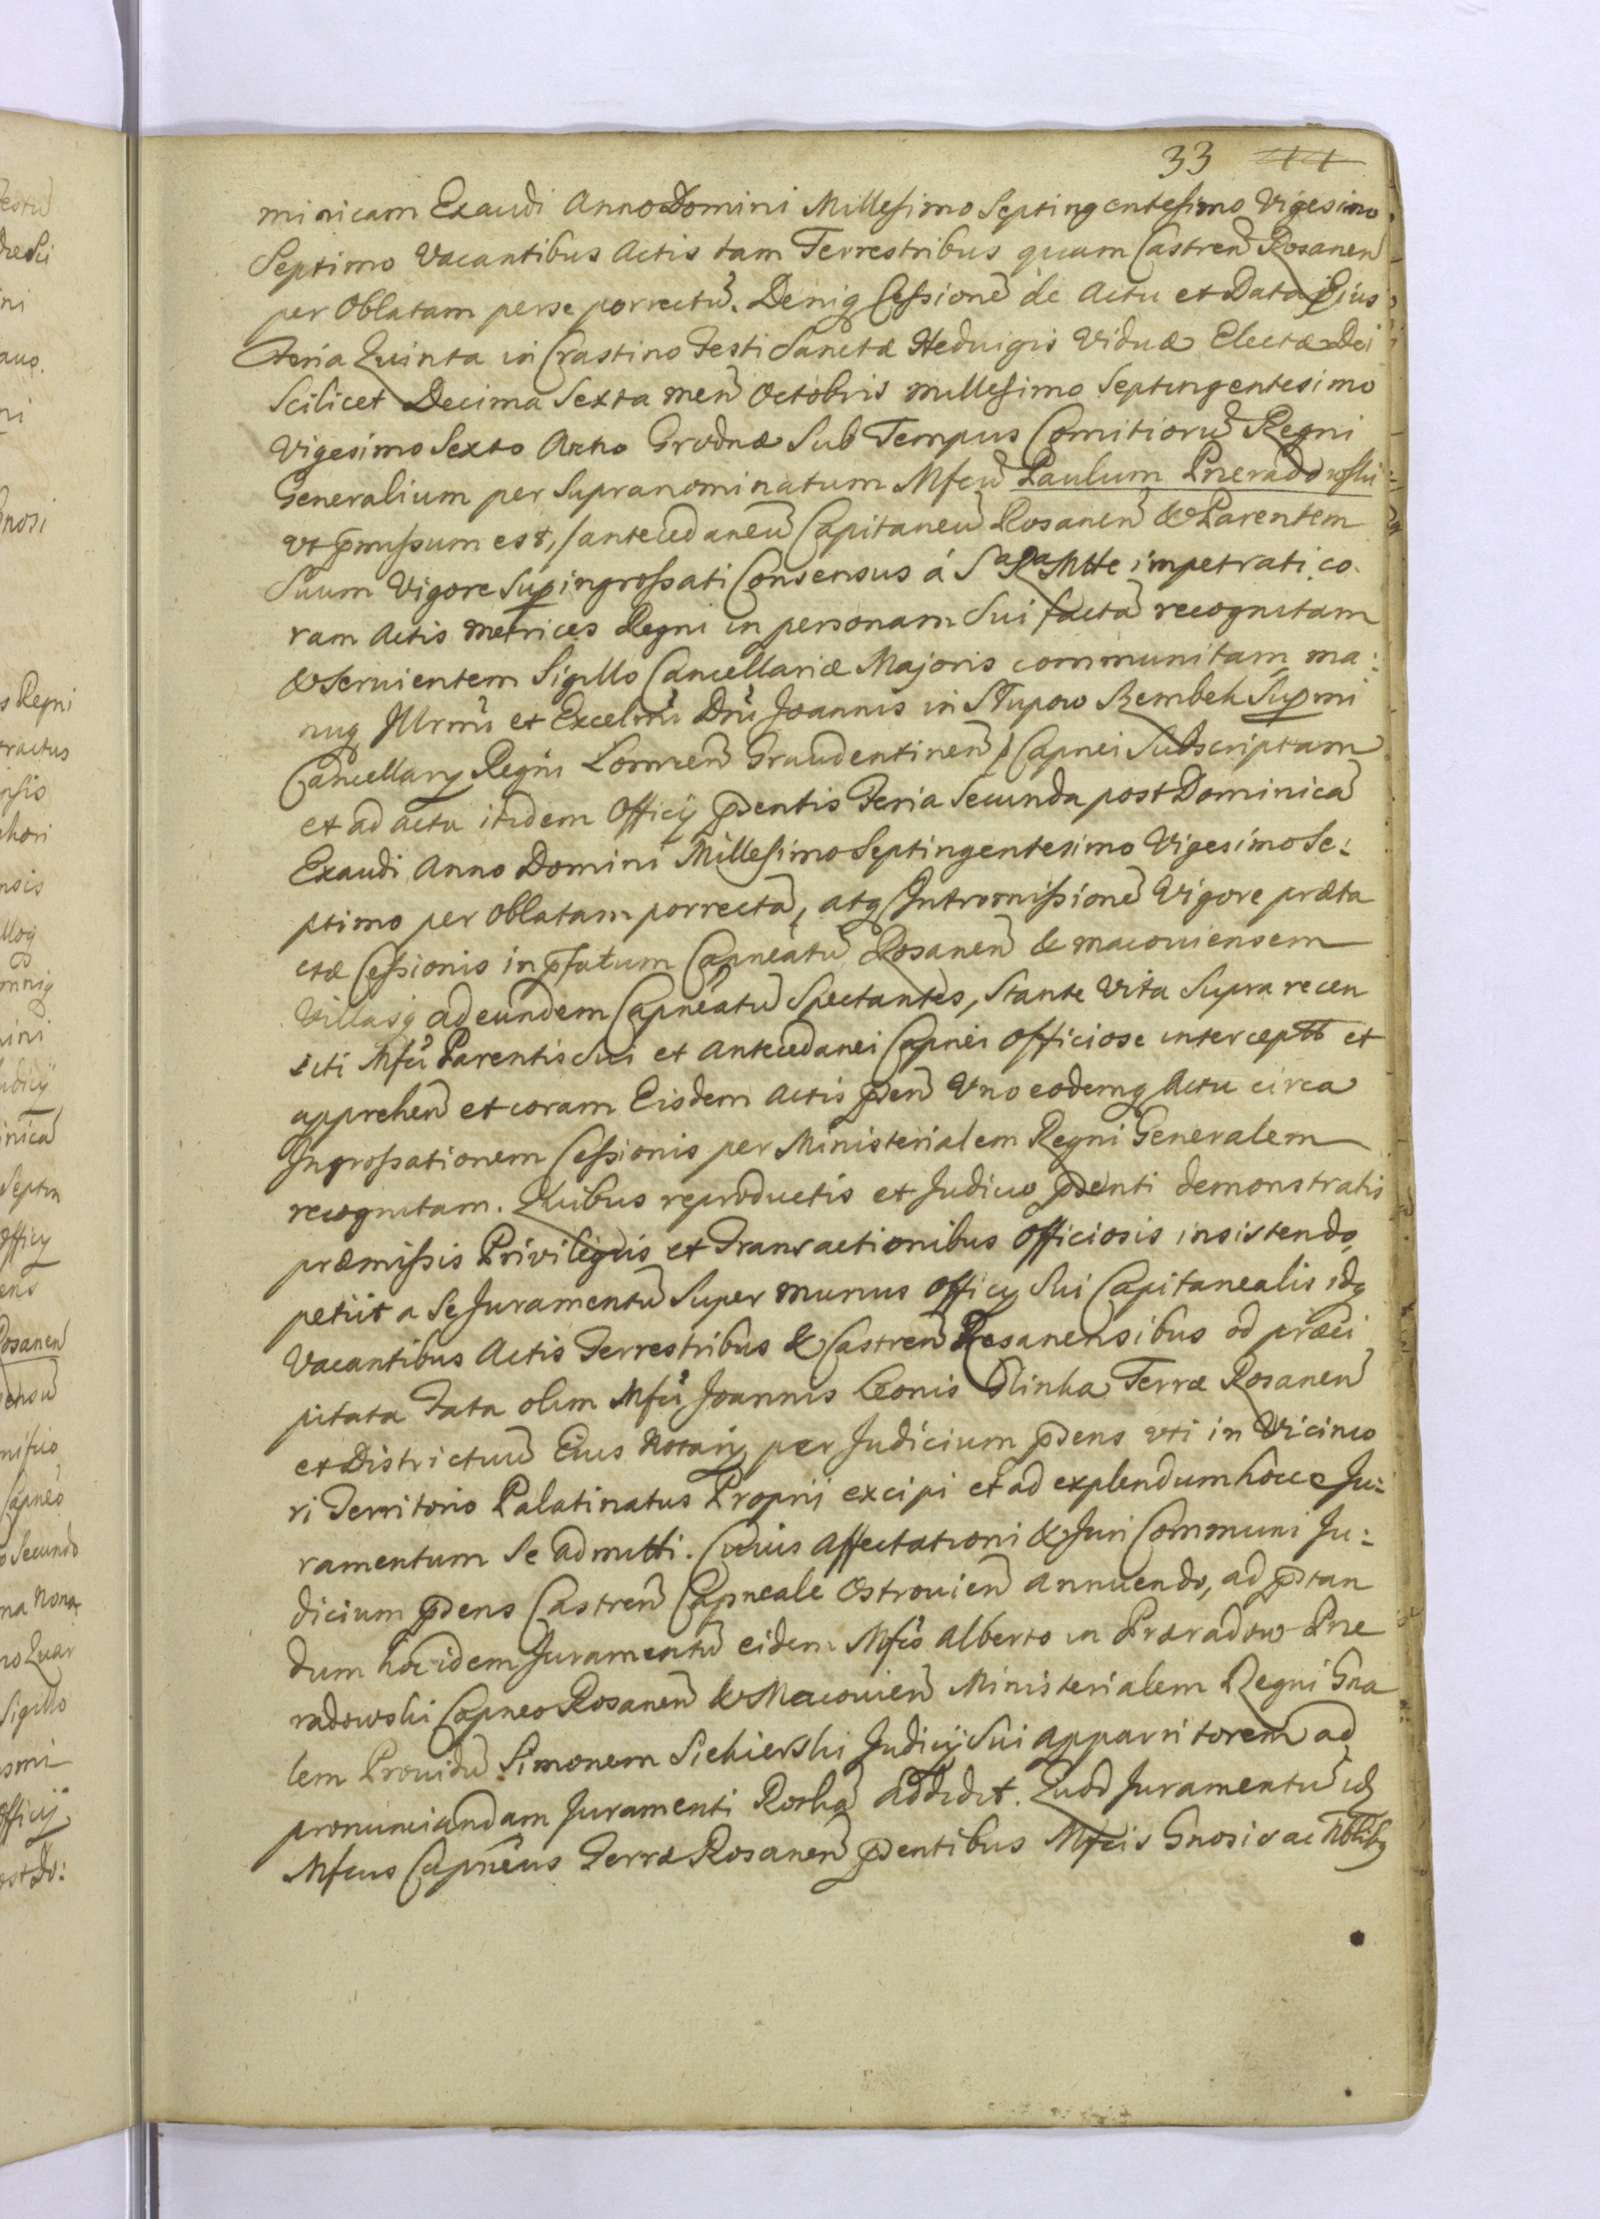 33 44
minicam Exaudi Anno Domini Millesimo Septingentesimo Vigesimo
Septimo Vacantibus Actis tam Terrestribus quam Castren̄ Rosanen̄
per Oblatam per se porrectū. Deniq Cessionē de Actu et Data Ejus
Feria Quinta in Crastino Festi Sanctæ Hedvigis Viduæ Electæ Dei
Scilicet Decima Sexta men̄ Octobris millesimo Septingentesimo
Vigesimo Sexto Anno Grodnæ Sub Tempus Comitiorū Regni
Generalium per Supranominatum Mfcū Paulum Przeradowski
vt p̄missum est, /antecedaneū Capitaneū Rosanen̄ & Parentem
Suum Vigore Sup̱ingrossati Consensus á Sa Ra Mtte impetrati co:
ram Actis metrices Regni in personam Sui factā recognitam
& Servientem Sigillo Cancellariæ Majoris communitam, ma:
nuq Illrm̄i et Excelm̄i Dn̄i Joannis in Słupow Szembek Sup̱mi
Cancellarij Regni Lomzen̄ Graudentinen̄ Capnei Subscriptam
et ad acta itidem Officij p̄sentis Feria Secunda post Dominicā
Exaudi Anno Domini Millesimo Septingentesimo Vigesimo Se:
ptimo per oblatam porrectā, atq Intromissionē Vigore præta
ctæ Cessionis in p̄fatum Capneatū Rosanen̄ & macoviensem
Villasq ad eundem Capneatū Spectantes, Stante Vita Supra recen
siti Mfci Parentis Sui et Antecedanei Capnei Officiose intercept et
apprehen̄ et coram Eisdem Actis p̄sen̄ Uno eodemq Actu circa
Ingrossationem Cessionis per Ministerialem Regni Generalem
recognitam. Quibus reproductis et Judicio p̄senti demonstratis
præmissis Privilegiis et Transactionibus Officiosis insistendo,
petiit a Se Juramentū Super munus Officij Sui Capitanealis idq
Vacantibus Actis Terrestribus & Castren̄ Rosanensibus ob præci
pitata Fata olim Mfci Joannis Leonis Glinka Terræ Rosanen̄
et Districtuū Eius Notarij per Judicium p̄sens vti in Vicinio
ri Territorio Palatinatus Proprii excipi et ad explendum hocce Ju:
ramentum Se admitti. Cuius Affectationi & Juri Communi Ju:
dicium p̄sens Castren̄ Capneale Ostrovien̄ annuendo, ad p̄stan
dum hoc idem Juramentū eidem Mfco Alberto in Przeradow Prze
radowski Capneo Rosanen̄ & Macovien̄ Ministerialem Regni Gna
lem Providū Simonem Siekierski Judicij Sui Apparitorem ad
pronunciandam Juramenti Rothā addidit. Quod Juramentū id
Mfcus Capneus Terræ Rosanen̄ p̄sentibus Mfcis Gnosis ac Nblibq